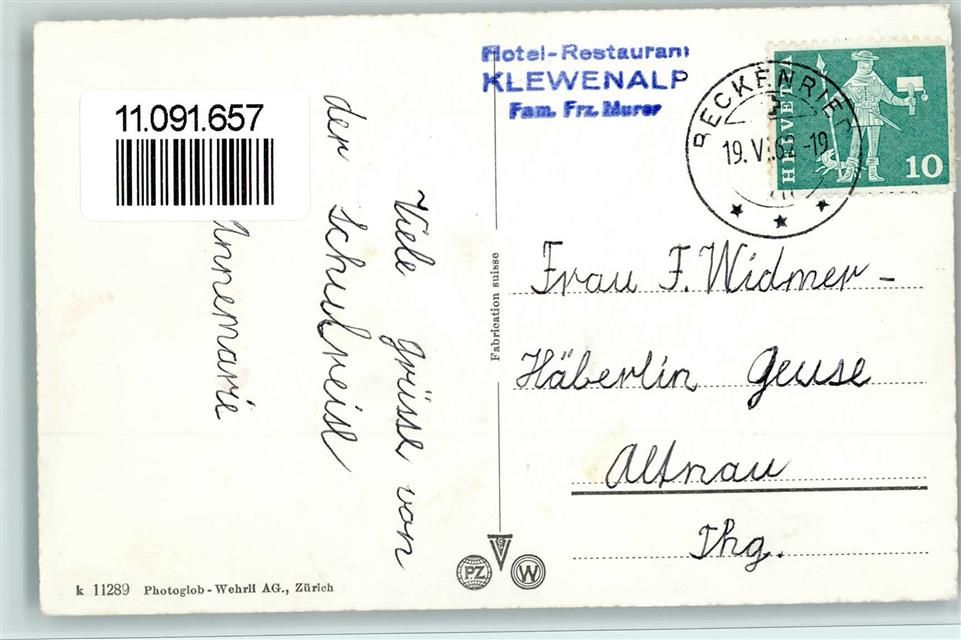 Hotel-Restaurant
KLEWENALP
Fam. Frz. Murer
BECKENRIED
19. VI. 62 -19
HELVETIA
10
11.091.657
Viele Grüsse von
der Schulreise
Annemarie
Frau F. Widmer-
Häberlin Geuse
Altnau
Thg.
Fabrication suisse
PZ
W
k 11289 Photoglob-Wehrli AG., Zürich